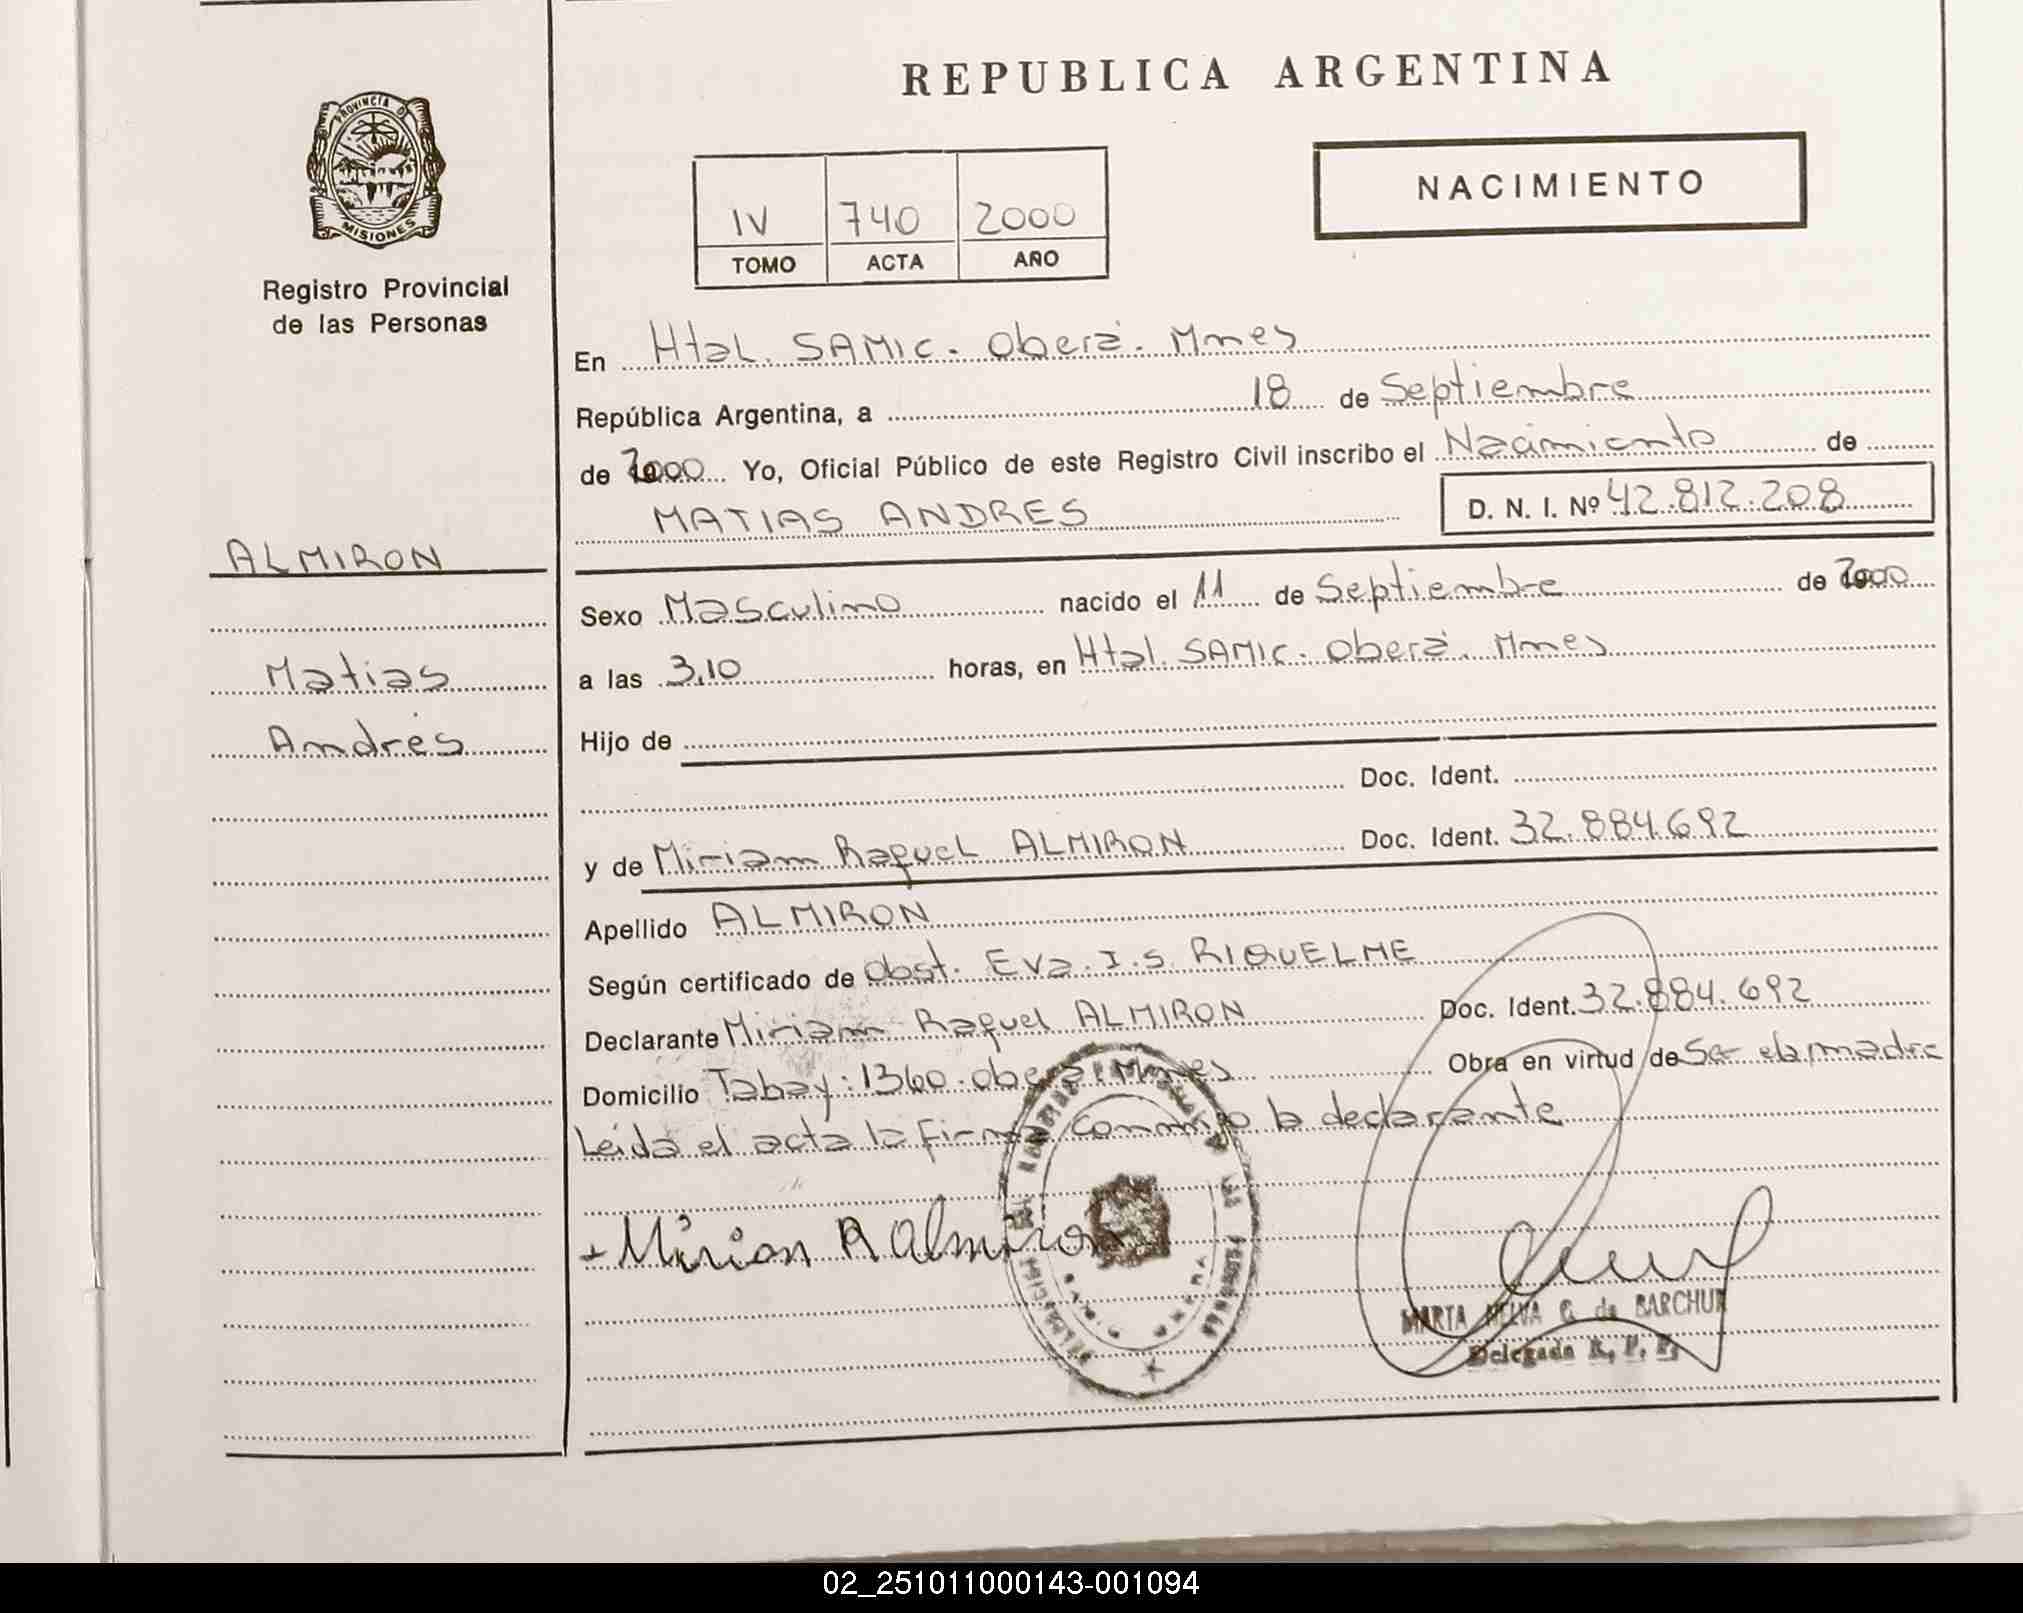 REPUBLICA ARGENTINA
PROVINCIA D
MISIONES
Registro Provincial
de las Personas
IV 740 2000
TOMO ACTA AÑO
NACIMIENTO
En Htal. SAMIC. Oberá. Mnes
República Argentina, a 18 de Septiembre
de 2000 Yo, Oficial Público de este Registro Civil inscribo el Nacimiento de
MATIAS ANDRES D. N. I. Nº 42.812.208
ALMIRON
Matias
Andrés
Sexo Masculino nacido el 11 de Septiembre de 2000
a las 3,10 horas, en Htal. SAMIC. Oberá. Mnes
Hijo de
Doc. Ident.
y de Miriam Raquel ALMIRON Doc. Ident. 32.884.692
Apellido ALMIRON
Según certificado de Obst. Eva. I. S. RIQUELME
Declarante Miriam Raquel ALMIRON Doc. Ident. 32.884.692
Domicilio Tabay: 1360. Oberá. Mnes Obra en virtud de Se la madre
Leida el acta la firma conmigo la declarante
Mirian R Almiron
MARTA NELVA G. de BARCHUK
Delegada R. P. P.
02_251011000143-001094